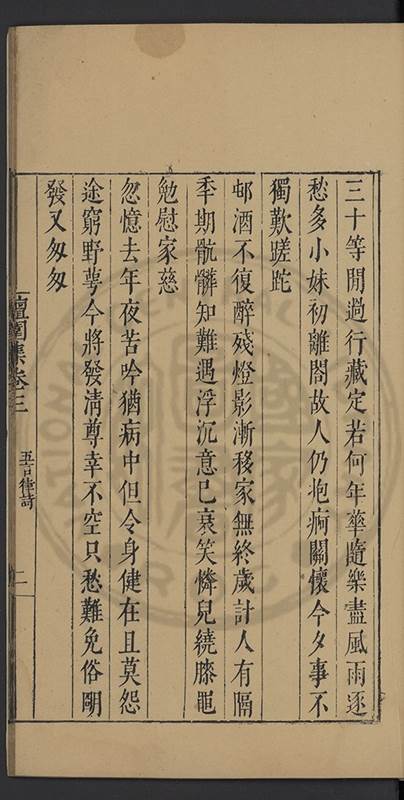 三十等閒過行藏定若何年華隨樂盡風雨逐
愁多小妹初離閤故人仍抱痾關懷今夕事不
獨歎蹉跎
邨酒不復醉殘燈影漸移家無終歲計人有隔
季期骯髒知難遇浮沉意已衰笑憐兒繞膝黽
勉慰家慈
忽憶去年夜苦吟猶病中但令身健在且莫怨
途窮野萼今將發清尊幸不空只愁難免俗朙
發又匆匆
集卷三
五言律詩
二